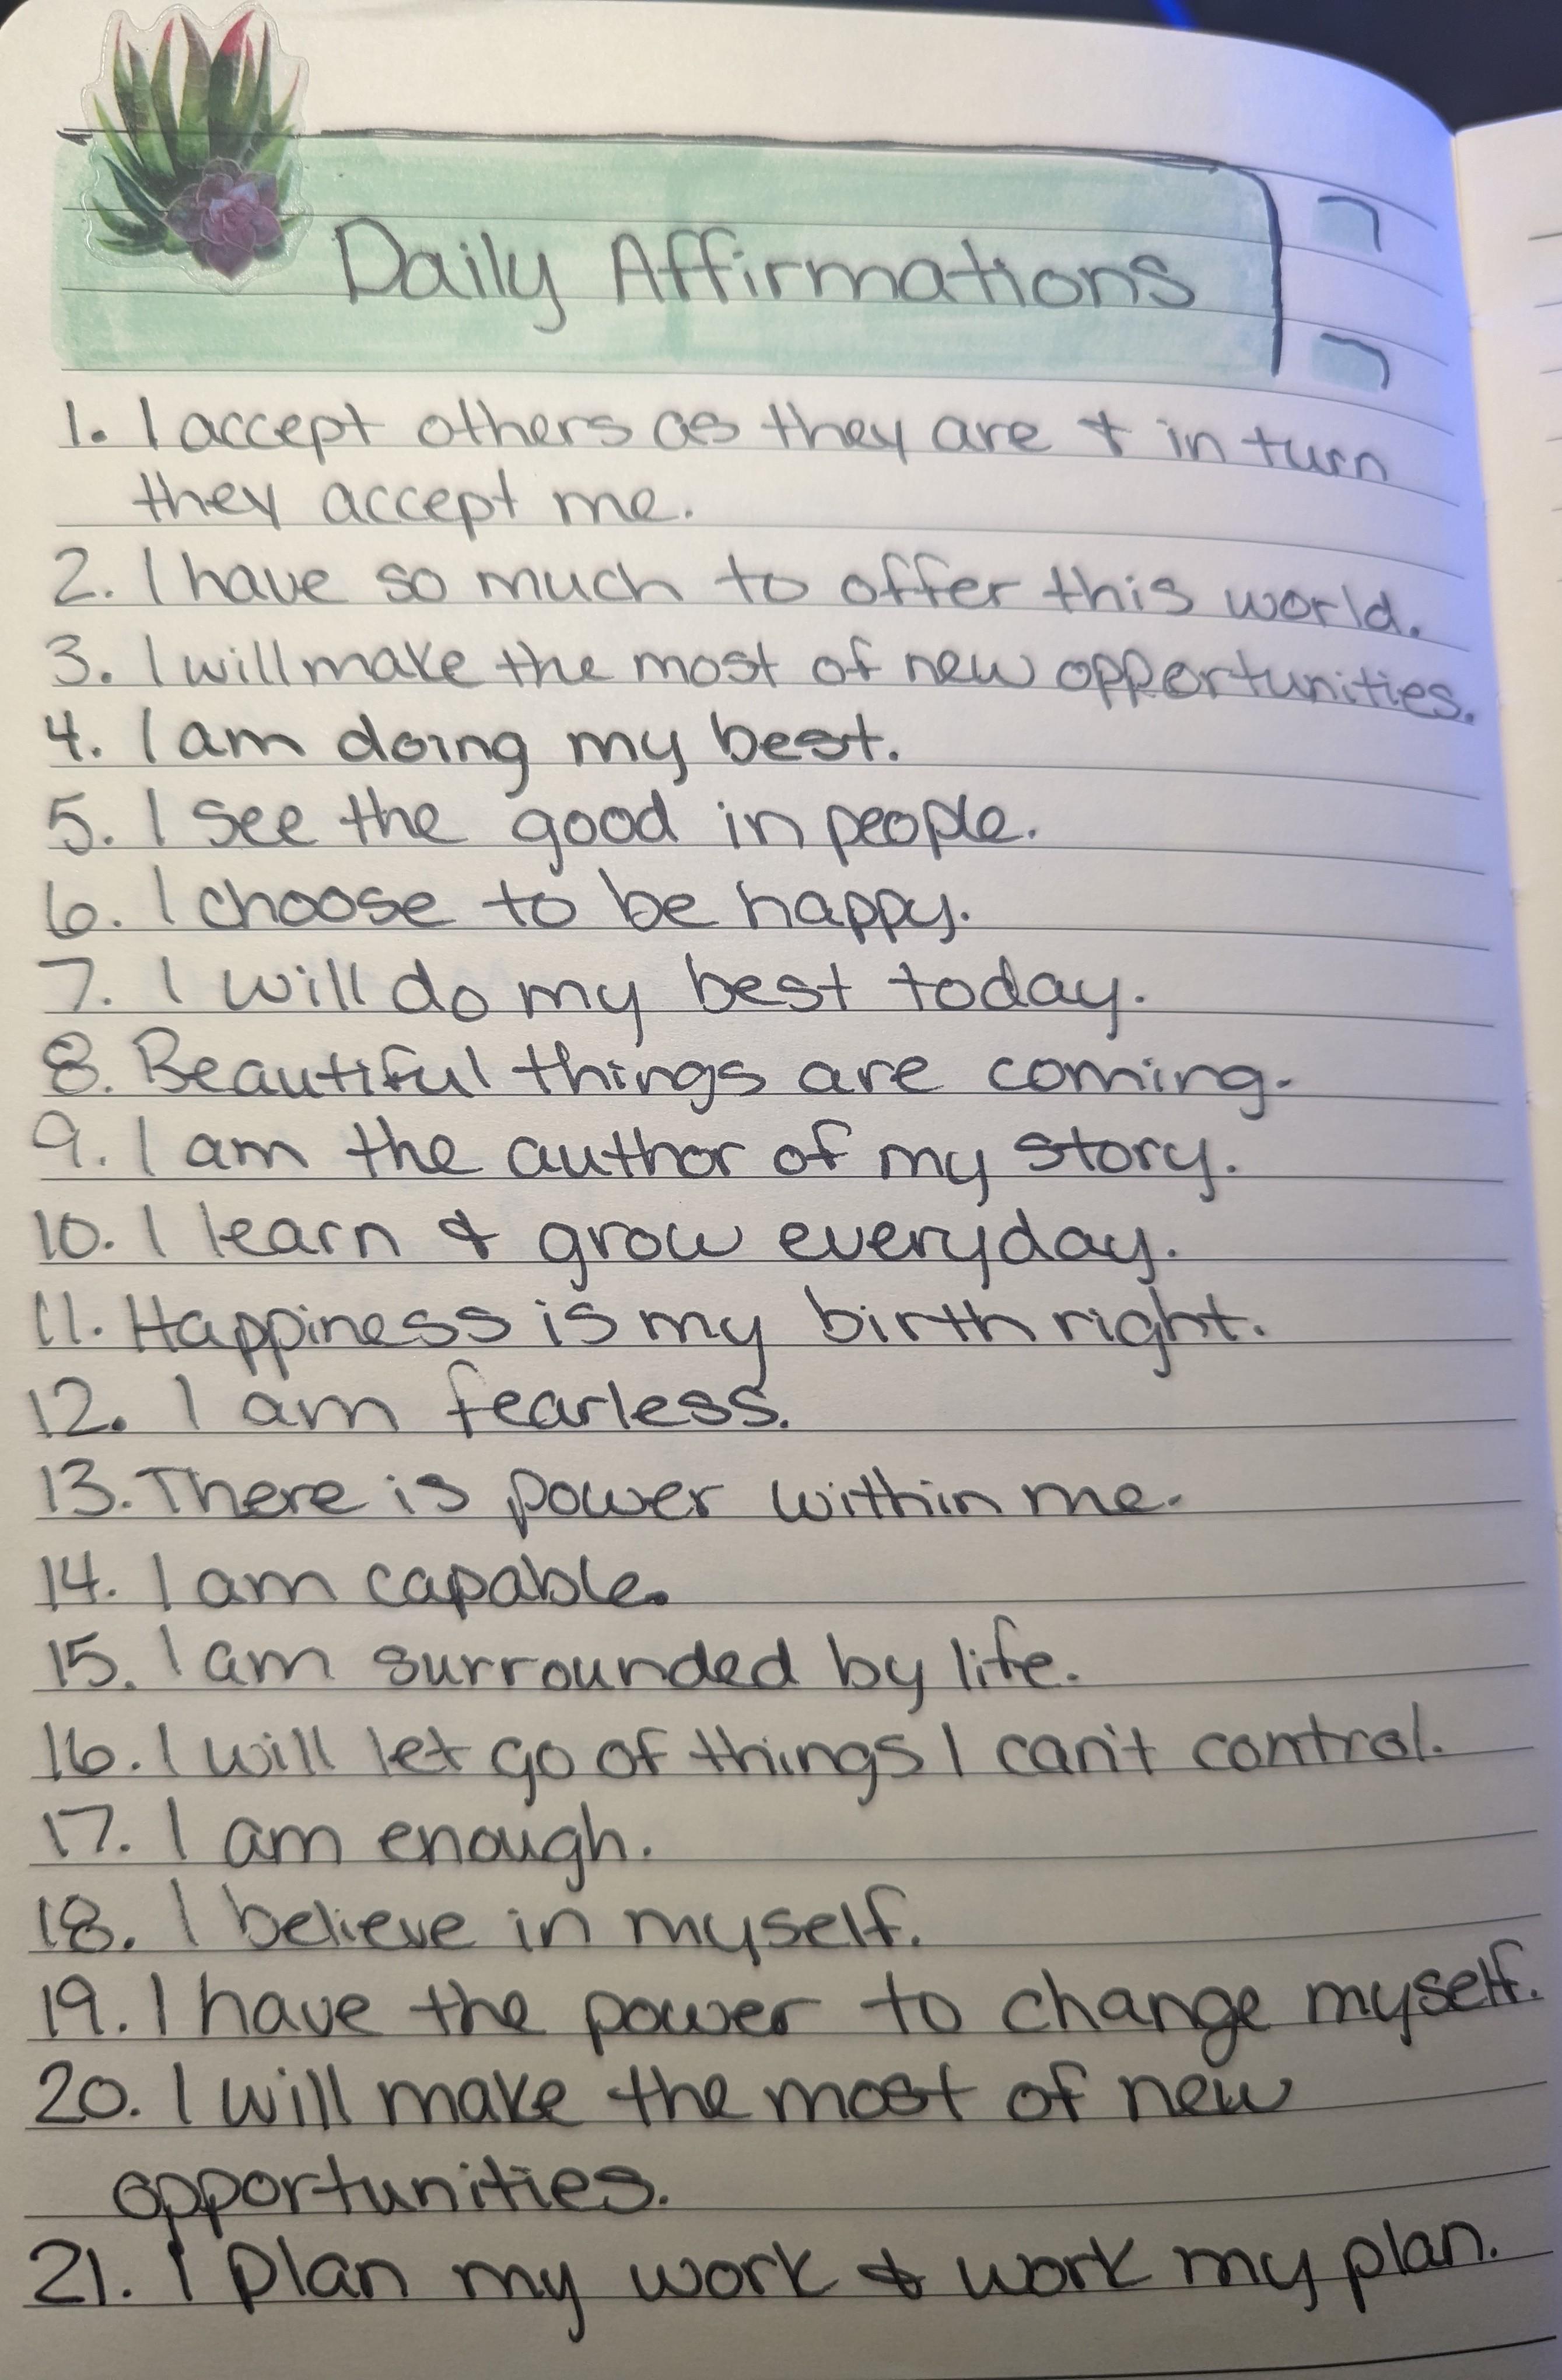 Daily Affirmations
1. I accept others as they are & in turn
they accept me.
2. I have so much to offer this world.
3. I will make the most of new opportunities.
4. I am doing my best.
5. I see the good in people.
6. I choose to be happy.
7. I will do my best today.
8. Beautiful things are coming.
9. I am the author of my story.
10. I learn & grow everyday.
11. Happiness is my birth right.
12. I am fearless.
13. There is power within me.
14. I am capable.
15. I am surrounded by life.
16. I will let go of things I can't control.
17. I am enough.
18. I believe in myself.
19. I have the power to change myself.
20. I will make the most of new
opportunities.
21. I plan my work & work my plan.